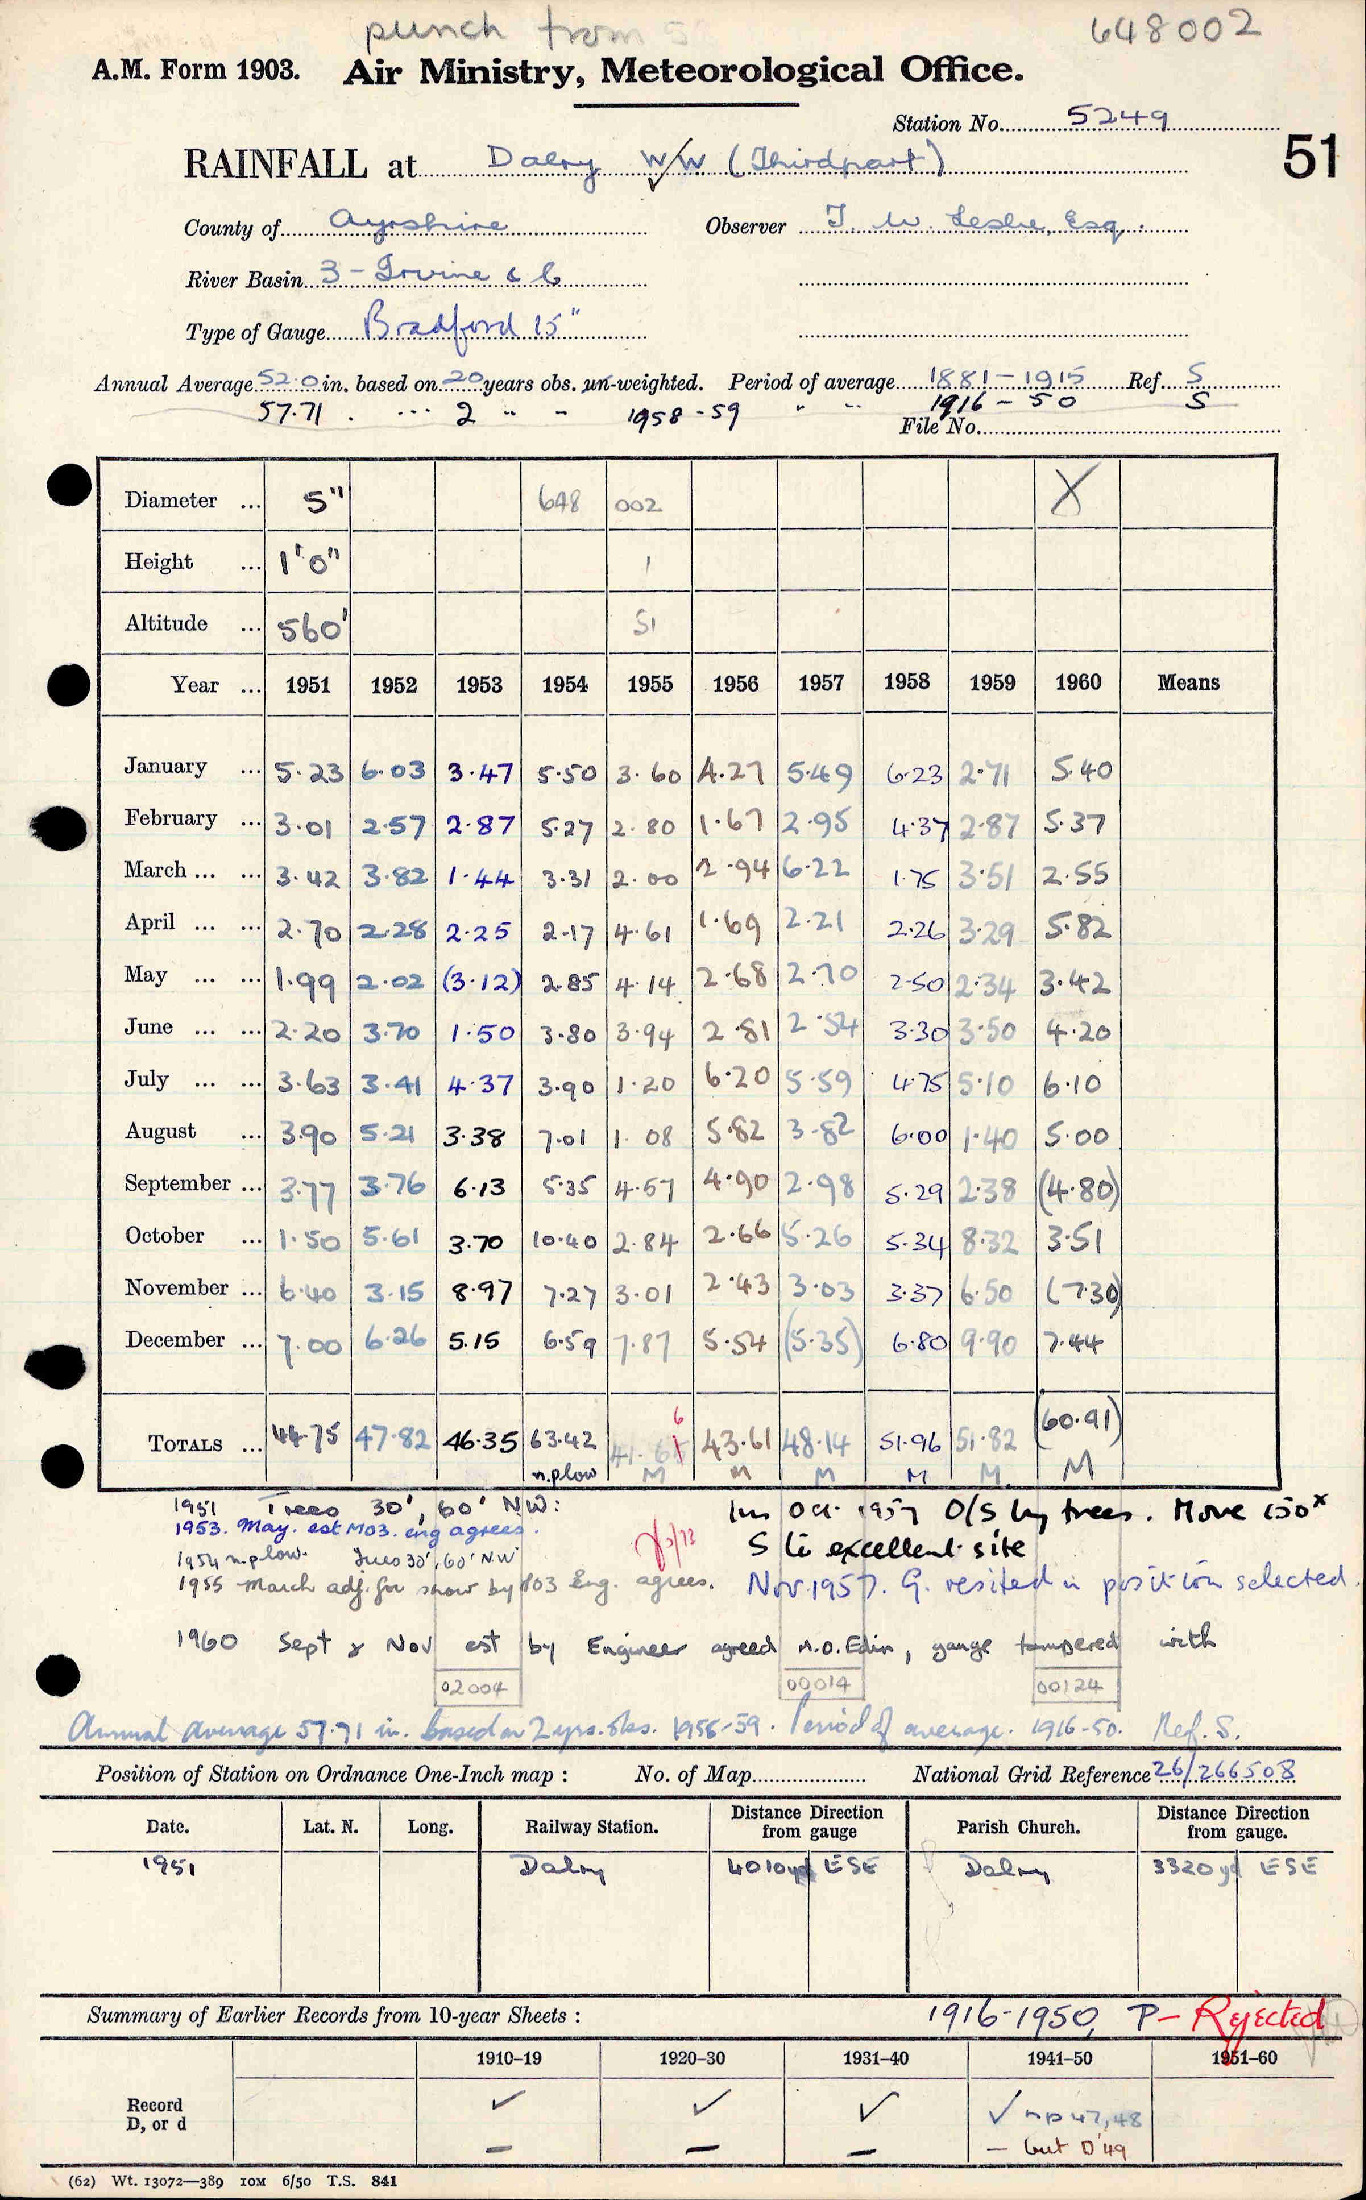 punch from 648002
A.M. Form 1903. Air Ministry, Meteorological Office.
Station No. 5249
51
RAINFALL at Dalry W/W (Thirdpart)
County of Ayrshire Observer J. W. Leslie, Esq.
River Basin 3 - Irvine & C
Type of Gauge Bradford 15"
Annual Average 52.0 in. based on 20 years obs. un-weighted. Period of average 1881-1915 Ref. S
57.71 . ... 2 " - 1958-59 " " 1916-50 S
File No.
Diameter ... 5" 648 002 X
Height ... 1'0" 1
Altitude ... 560' 51
Year ... 1951 1952 1953 1954 1955 1956 1957 1958 1959 1960 Means
January ... 5.23 6.03 3.47 5.50 3.60 4.27 5.49 6.23 2.71 5.40
February ... 3.01 2.57 2.87 5.27 2.80 1.67 2.95 4.37 2.87 5.37
March ... ... 3.42 3.82 1.44 3.31 2.00 2.94 6.22 1.75 3.51 2.55
April ... ... 2.70 2.28 2.25 2.17 4.61 1.69 2.21 2.26 3.29 5.82
May ... ... 1.99 2.02 (3.12) 2.85 4.14 2.68 2.70 2.50 2.34 3.42
June ... ... 2.20 3.70 1.50 3.80 3.94 2.81 2.54 3.30 3.50 4.20
July ... ... 3.63 3.41 4.37 3.90 1.20 6.20 5.59 4.75 5.10 6.10
August ... 3.90 5.21 3.38 7.01 1.08 5.82 3.82 6.00 1.40 5.00
September ... 3.77 3.76 6.13 5.35 4.57 4.90 2.98 5.29 2.38 (4.80)
October ... 1.50 5.61 3.70 10.40 2.84 2.66 5.26 5.34 8.32 3.51
November ... 6.40 3.15 8.97 7.27 3.01 2.43 3.03 3.37 6.50 (7.30)
December ... 7.00 6.26 5.15 6.59 7.87 5.54 (5.35) 6.80 9.90 7.44
6
TOTALS ... 44.75 47.82 46.35 63.42 43.61 48.14 51.96 51.82 (60.91)
n.p low M M M M M M
1951 Trees 30', 60' NW: Ins Oct 1957 O/S by trees. Move 150x
1953. May. est MO3. eng agrees. S to excellent site
1954 n.p low. Trees 30', 60' NW
1955 March adj. for snow by MO3 Eng. agrees. Nov. 1957. G. resited in position selected.
1960 Sept & Nov est by Engineer agreed M.O. Edin, gauge tampered with
02004 00014 00124
Annual average 57.71 in. based on 2 yrs. obs. 1958-59. Period of average. 1916-50. Ref. S.
Position of Station on Ordnance One-Inch map : No. of Map National Grid Reference 26/266508
Date. Lat. N. Long. Railway Station. Distance Direction from gauge Parish Church. Distance Direction from gauge.
1951 Dalry 4010 yd ESE Dalry 3320 yd ESE
Summary of Earlier Records from 10-year Sheets : 1916-1950, P- Rejected
1910-19 1920-30 1931-40 1941-50 1951-60
Record D, or d ✓ ✓ ✓ ✓ np 47, 48
— — — — but D '49
(62) Wt. 13072—389 10M 6/50 T.S. 841